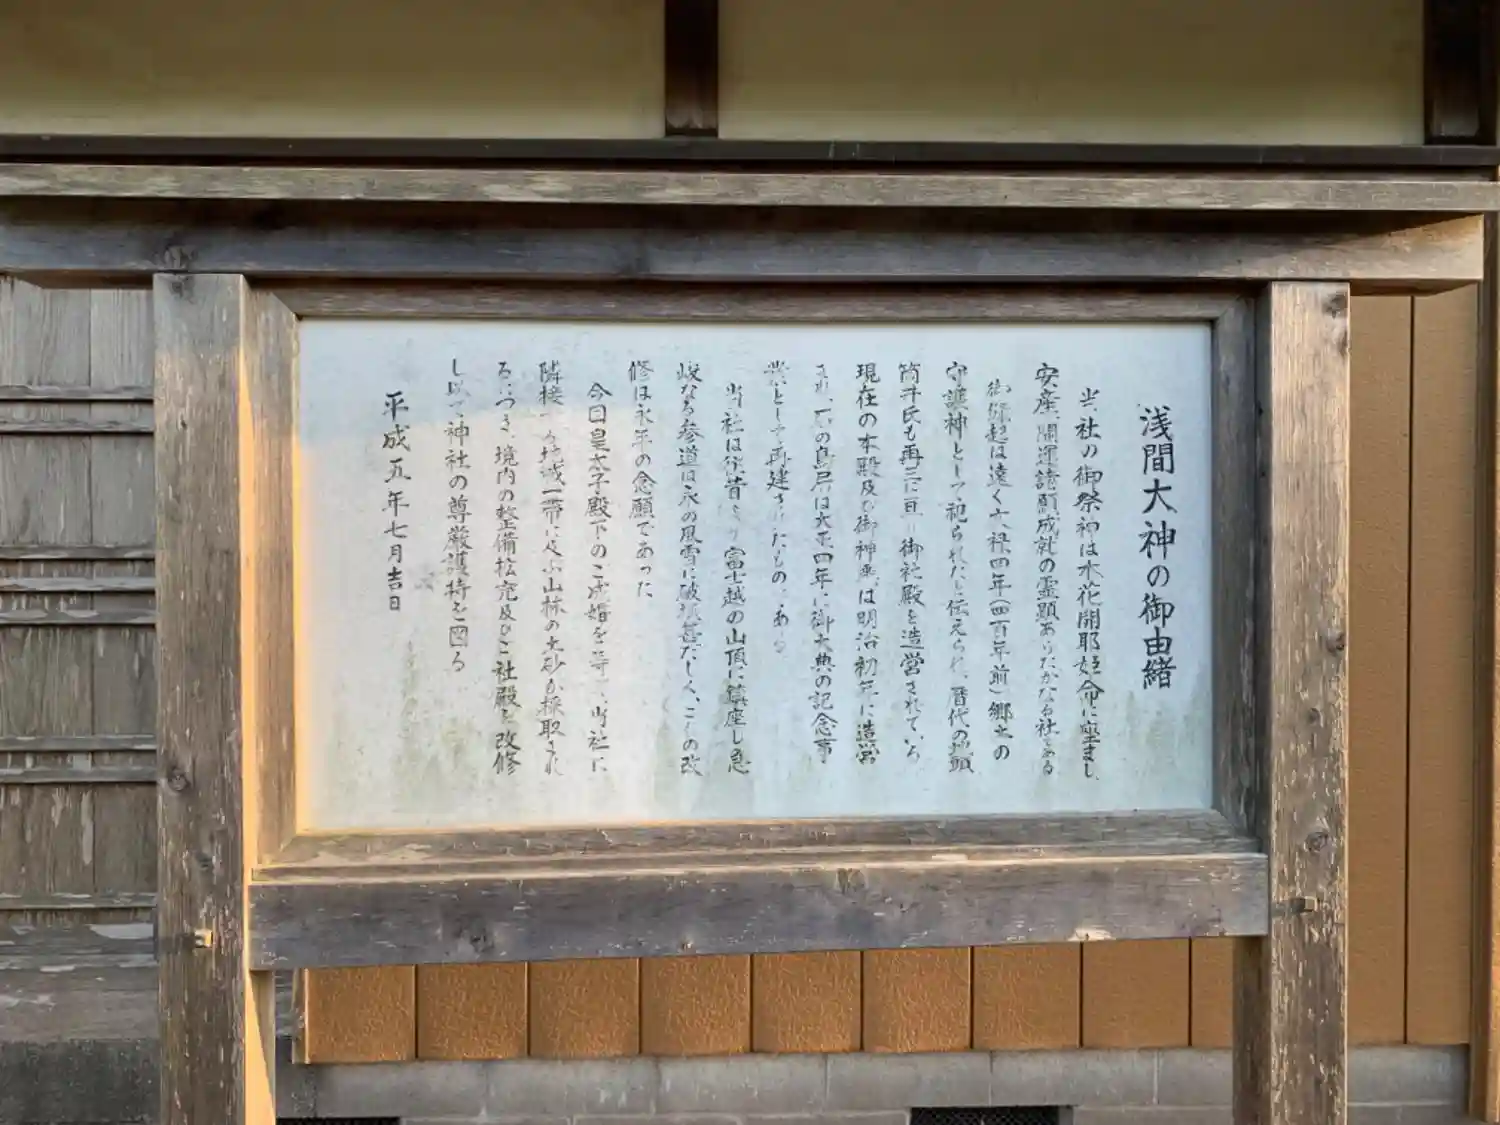 浅間大神の御由緒
当社の御祭神は木花開耶姫命に坐まし
安産、開運諸願成就の霊顕あらたかなる社である
御縁起は遠く永禄四年(四百年前)郷土の
守護神として祀られたと伝えられ、暦代の地頭
筒井氏も再三に亘り御社殿を造営されている
現在の本殿及び御神 は明治初年に造営
され、石の鳥居は大正四年に御大典の記念事
業として再建されたものである
当社は従昔 富士越の山頂に鎮座し急
峻なる参道は永の風雪に破 甚だしく、これの改
修は永年の念願であった
今回皇太子殿下のご成婚を 、当社に
隣接する地域一帯に及ぶ山林の土砂が採取され
るにつき、境内の整備拡充及びご社殿を改修
し以て神社の尊厳護持を図る
平成五年七月吉日